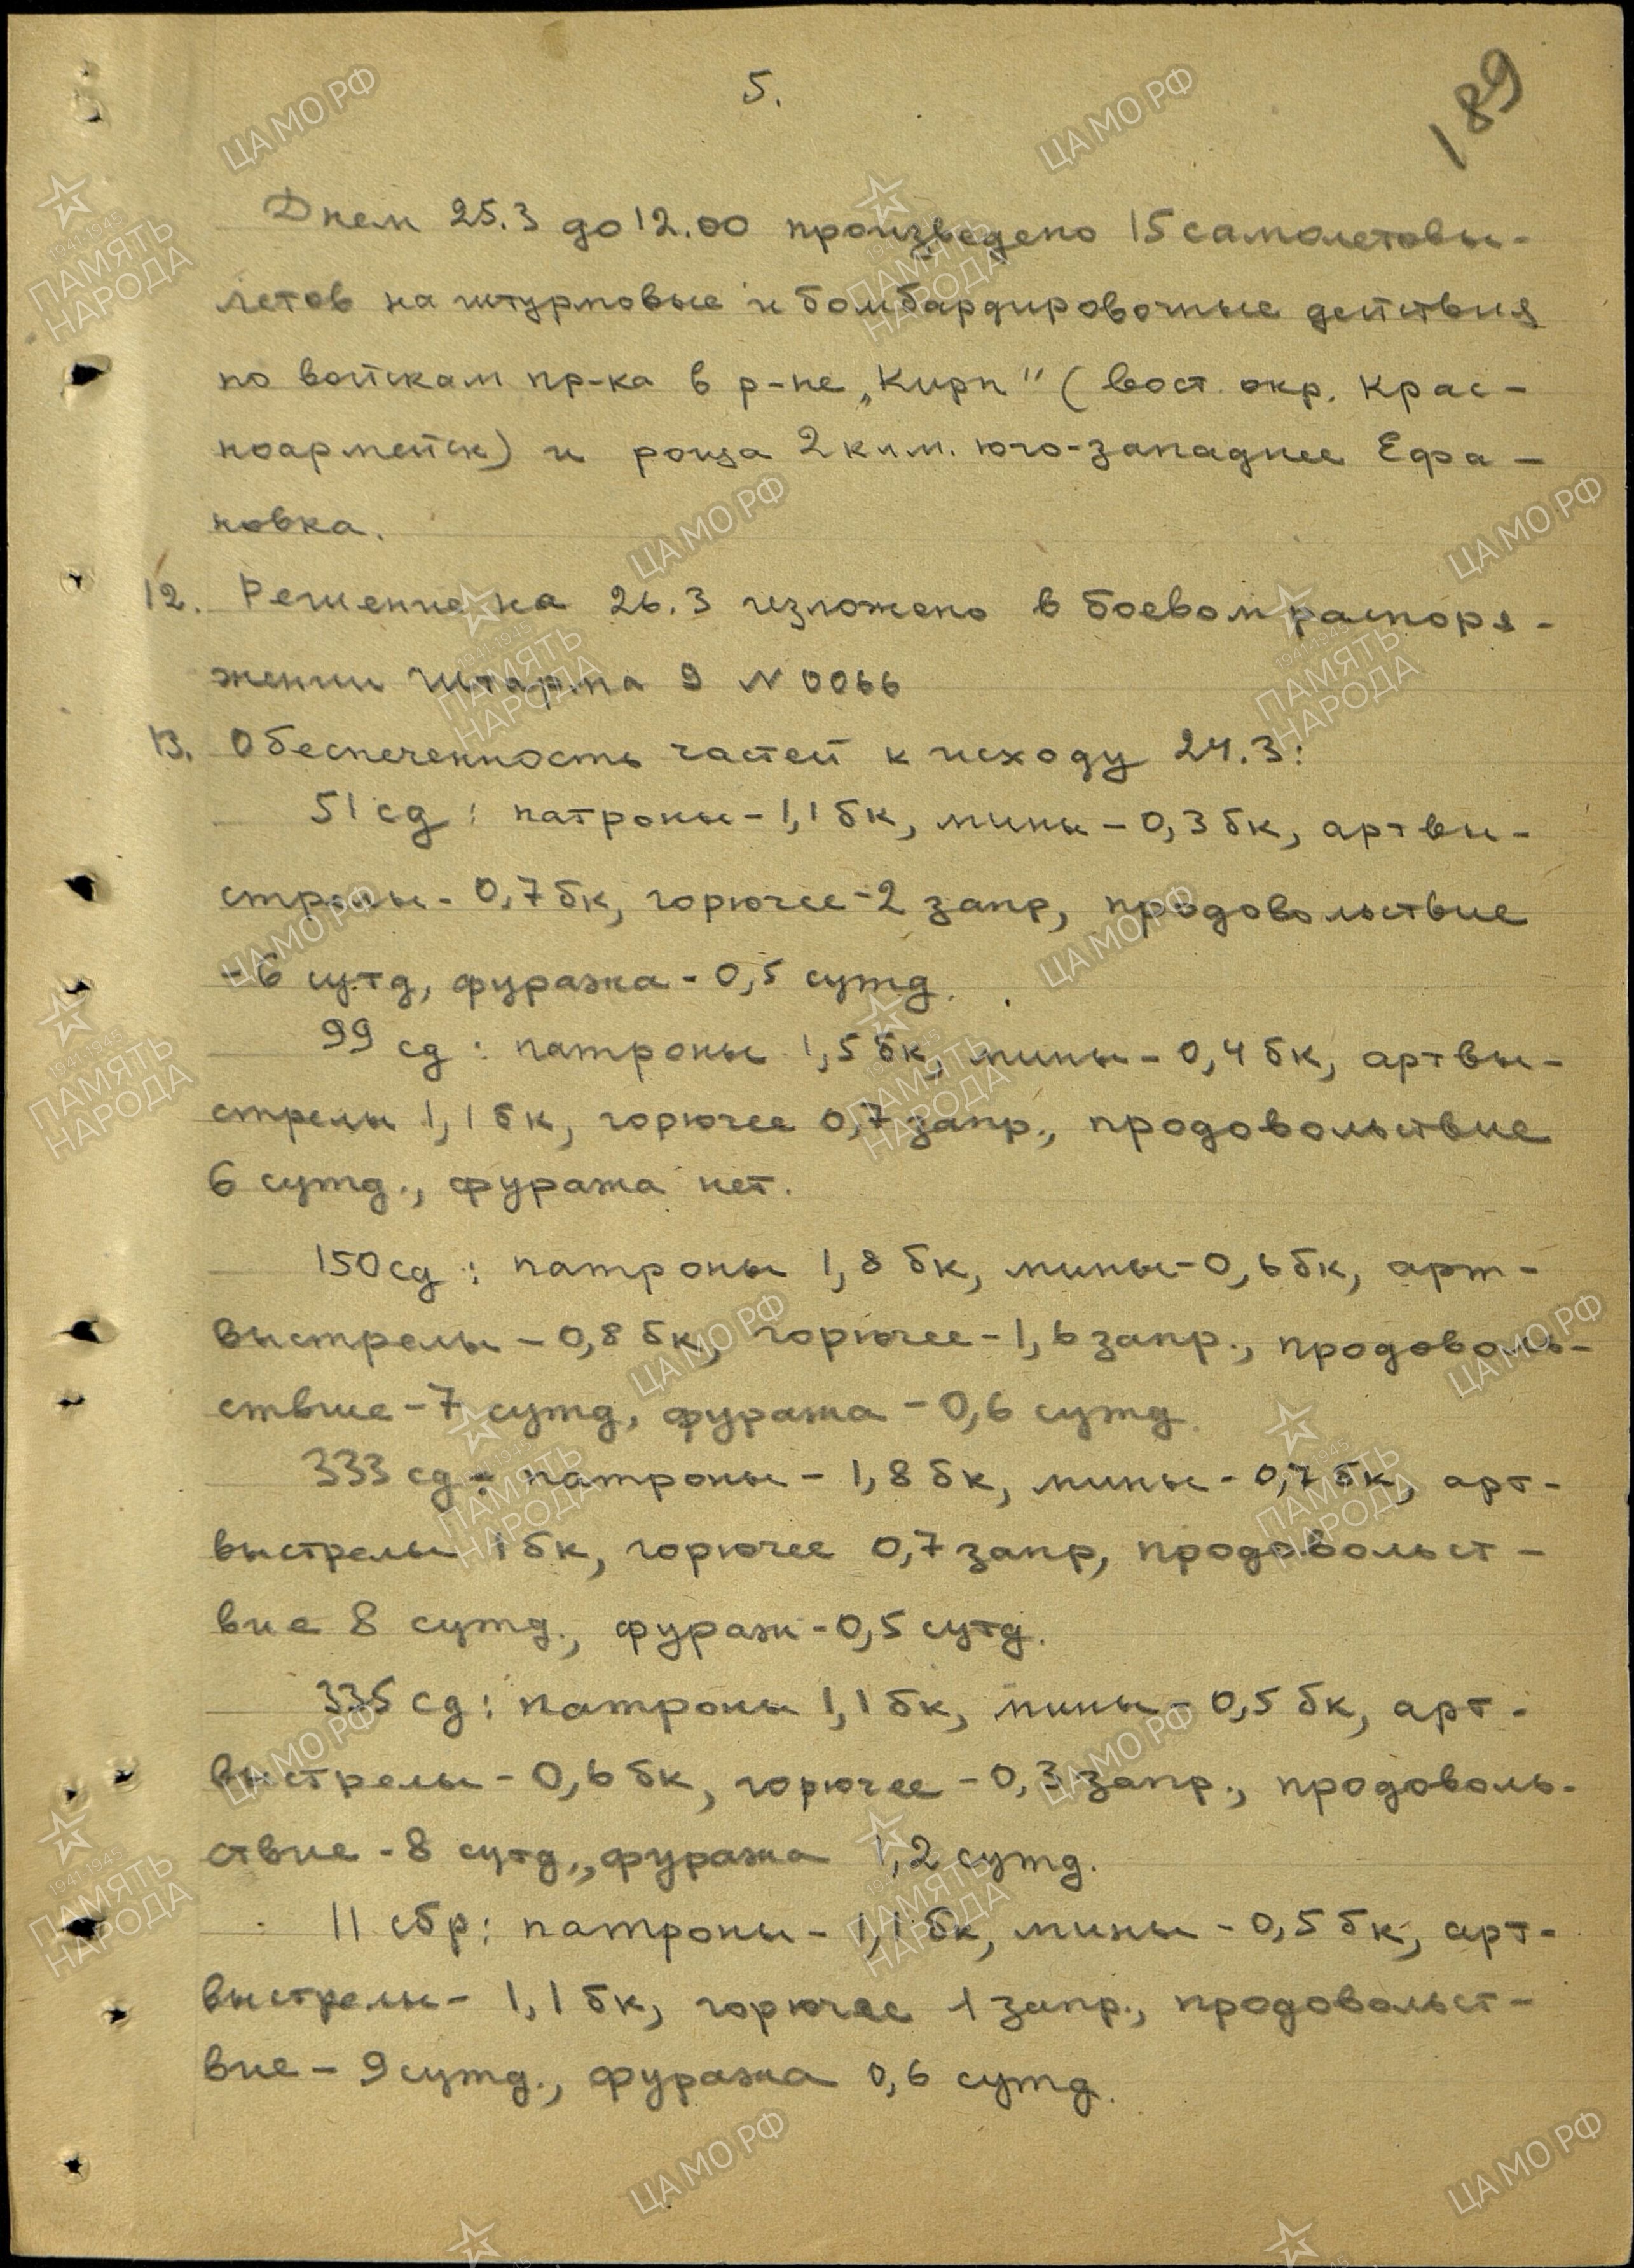 5.
189
Днем 25.3 до 12.00 произведено 15 самолетовы-
летов на штурмовые и бомбардировочные действия
по войскам пр-ка в р-не „Кирп" (вост. окр. Крас-
ноармейск) и роща 2 клм. юго-западнее Ефа-
новка.
12. Решение на 26.3 изложено в боевом распоря-
жении Штарма 9 N 0066
13. Обеспеченность частей к исходу 24.3:
51 сд: патроны - 1,1 бк, мины - 0,3 бк, артвы-
стрелы - 0,7 бк, горючее - 2 запр, продовольствие
- 6 сутд, фуража - 0,5 сутд.
99 сд: патроны 1,5 бк, мины - 0,4 бк, артвы-
стрелы 1,1 бк, горючее 0,7 запр., продовольствие
6 сутд., фуража нет.
150 сд: патроны 1,8 бк, мины - 0,6 бк, арт-
выстрелы - 0,8 бк, горючее - 1,6 запр., продоволь-
ствие - 7 сутд, фуража - 0,6 сутд.
333 сд - патроны - 1,8 бк, мины - 0,7 бк, арт-
выстрелы 1 бк, горючее 0,7 запр, продовольст-
вие 8 сутд., фураж - 0,5 сутд.
335 сд: патроны 1,1 бк, мины - 0,5 бк, арт-
выстрелы - 0,6 бк, горючее - 0,3 запр., продоволь-
ствие - 8 сутд., фуража 1,2 сутд.
11 сбр: патроны - 1,1 бк, мины - 0,5 бк, арт-
выстрелы - 1,1 бк, горючее 1 запр., продовольст-
вие - 9 сутд., фуража 0,6 сутд.